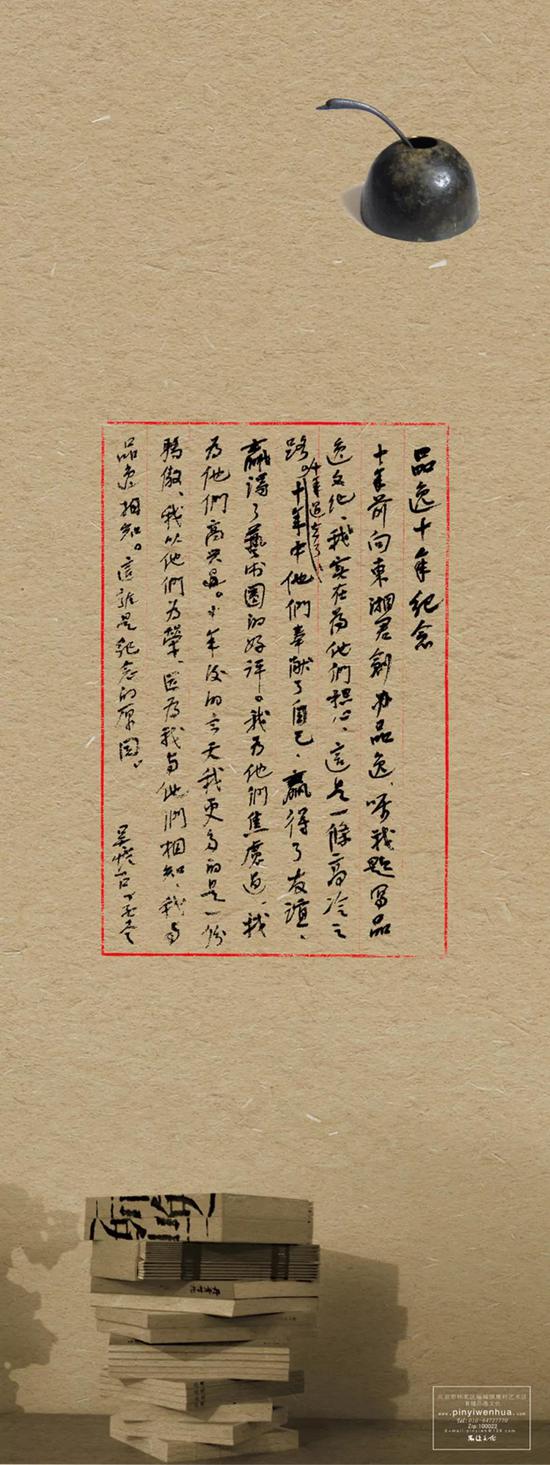 品逸十年纪念
十年前向東湖君創办品逸，嘱我題写品
逸文化，我实在為他們担心，這是一條高冷之
路。十年過去了
十年中他們奉献了自己，赢得了友誼，
赢得了藝术圈的好评。我为他們焦慮過，我
為他們高兴過。十年后的今天我更多的是一份
骄傲，我以他們为榮，因為我与他們相知，我与
品逸相知。這就是纪念的原因。
北京市朝阳区
www.pinyiwenhua.com
Tel: 010-84727770
Zip: 100023
品逸文化